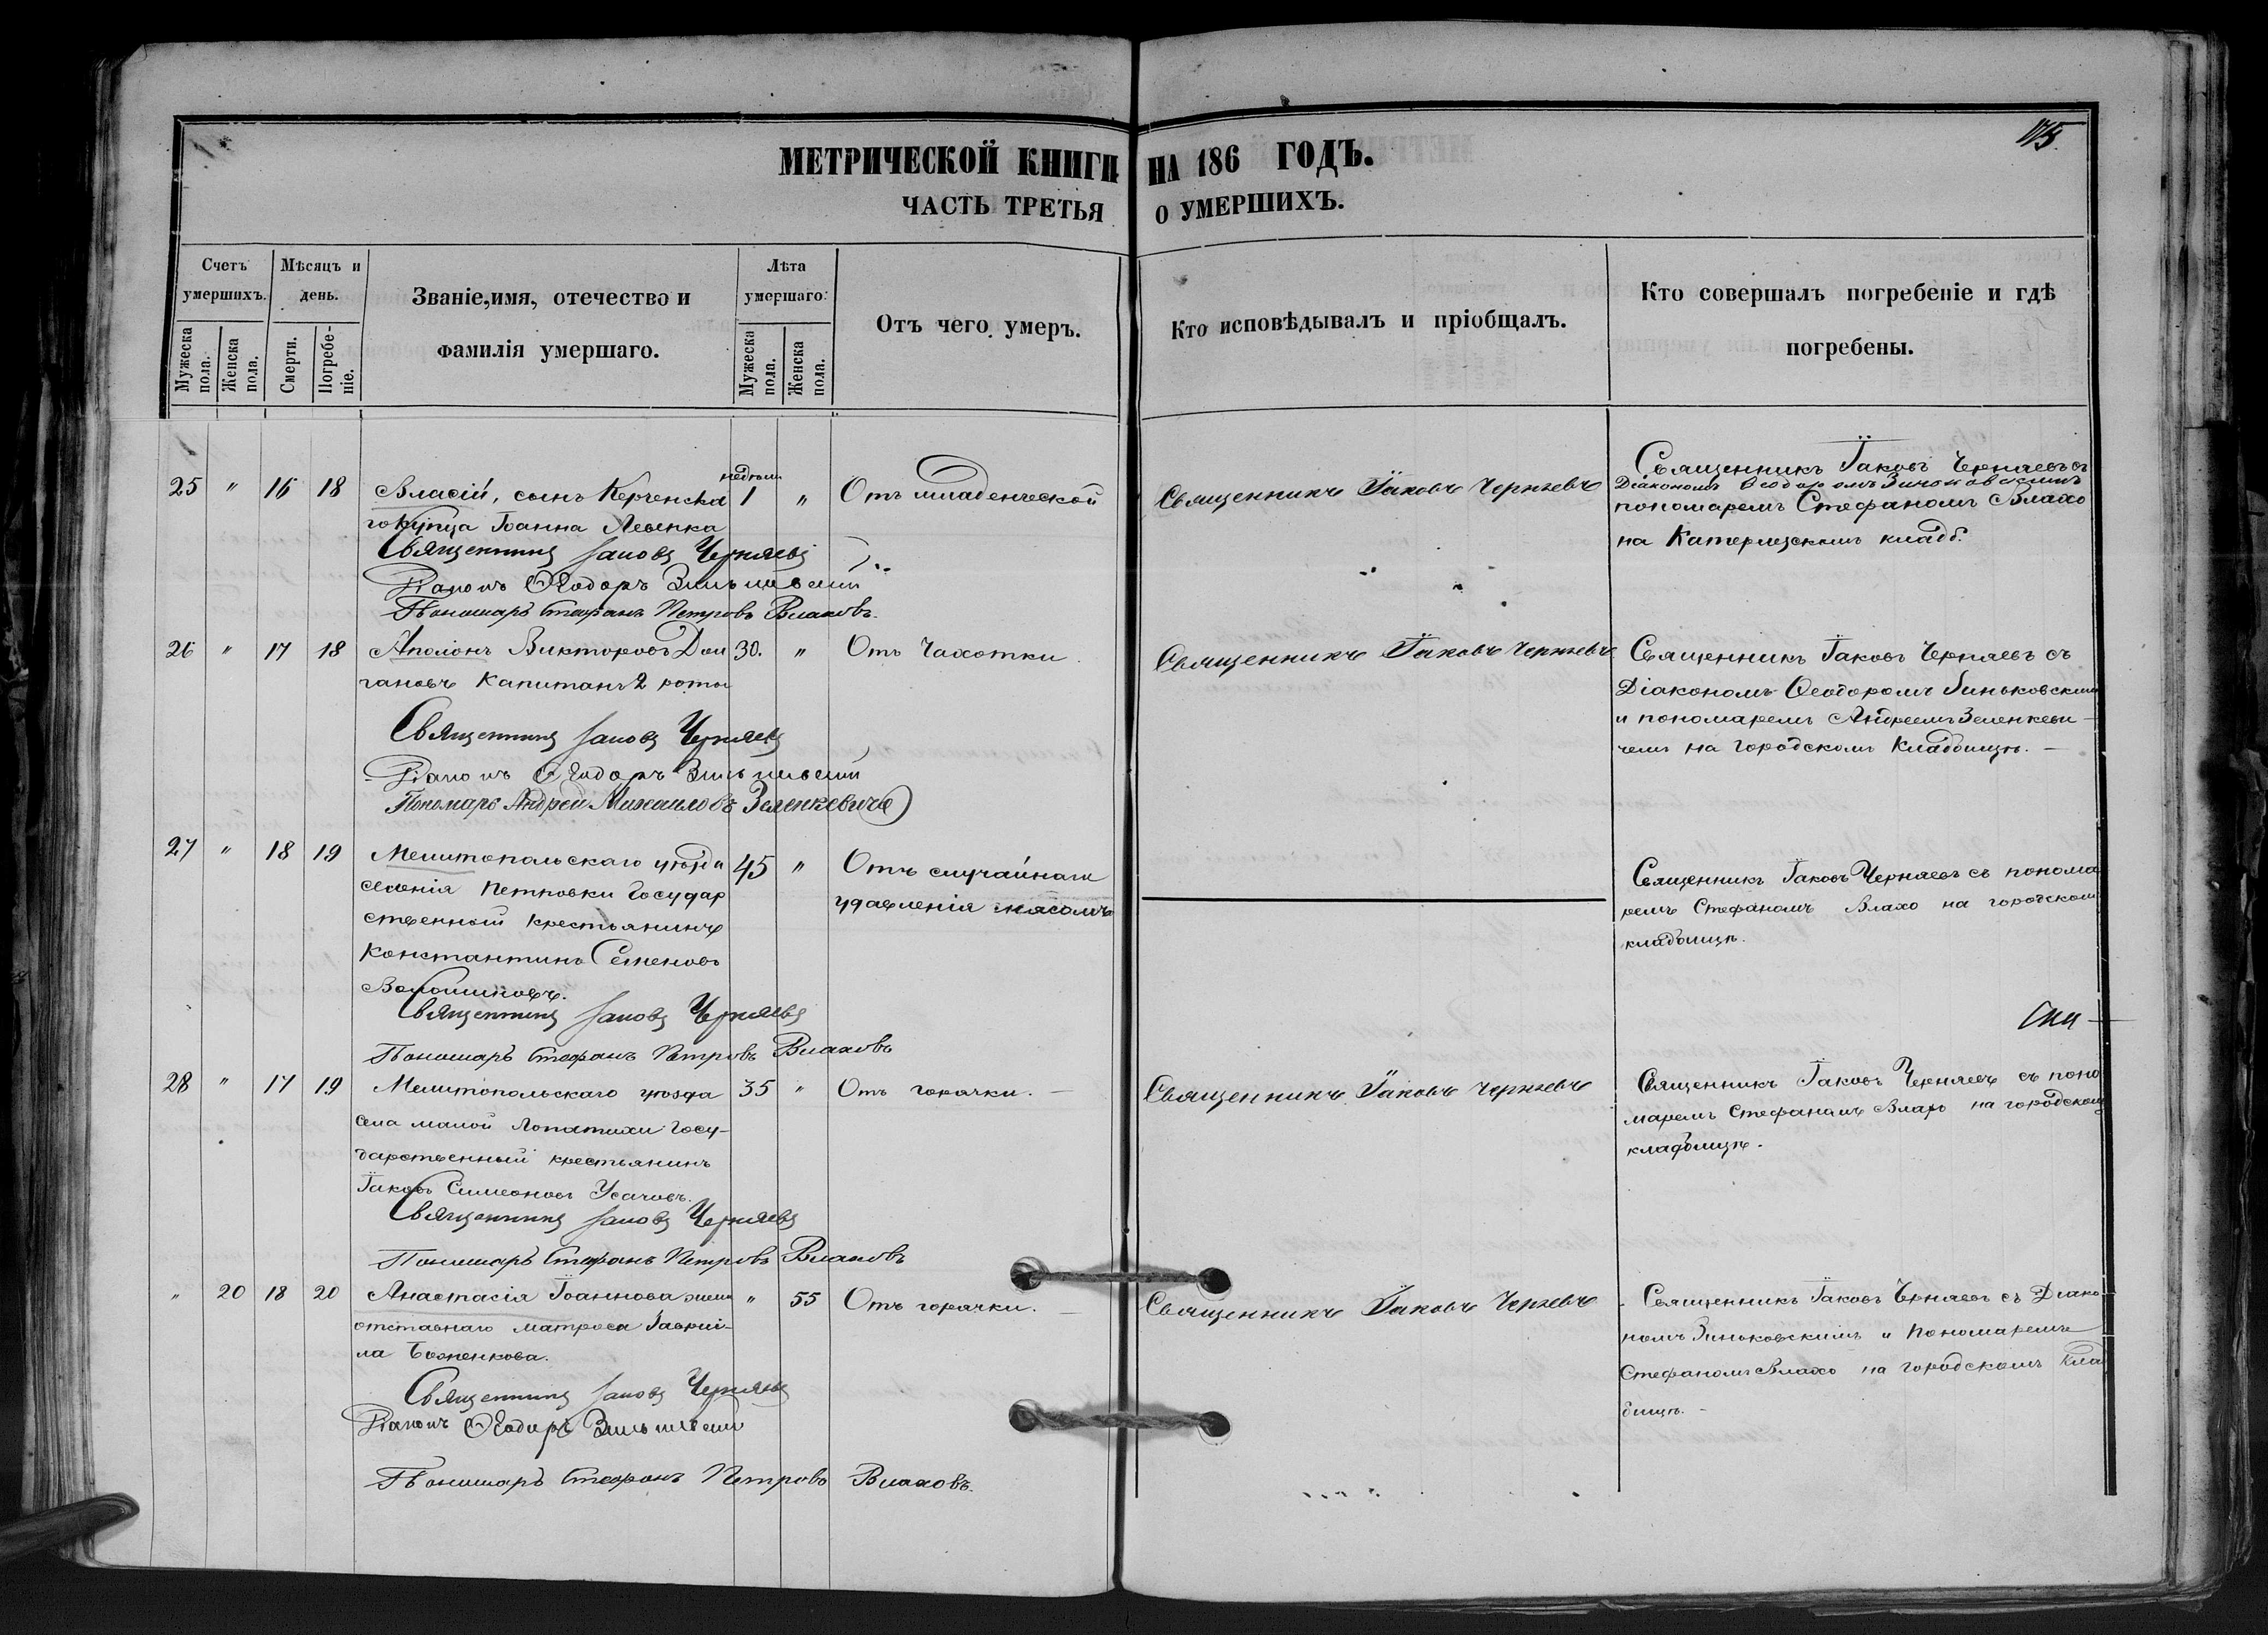 175.
МЕТРИЧЕСКОЙ КНИГИ НА 186 ГОДЪ.
ЧАСТЬ ТРЕТЬЯ О УМЕРШИХЪ.
Счетъ умершихъ.
Мужеска пола.
Женска пола.
Мѣсяцъ и день.
Смерти.
Погребе-
ніе.
Званіе, имя, отечество и
фамилія умершаго.
Лѣта умершаго.
Мужеска пола.
Женска пола.
Отъ чего умеръ.
Кто исповѣдывалъ и пріобщалъ.
Кто совершалъ погребеніе и гдѣ
погребены.
25 " 16 18
Власій, сынъ Керченска
го Купца Іоанна Левенка
недѣли
1 "
Отъ младенческой
Священникъ Іаковъ Черняевъ
Священникъ Іаковъ Черняевъ съ
Діакономъ Ѳеодоромъ Зиньковскимъ
пономаремъ Стефаномъ Влахо
на Катерлезскомъ кладб.
Священникъ Іаковъ Черняевъ
Діаконъ Ѳеодоръ Зиньковскій
Пономарь Стефанъ Петровъ Влаховъ.
26 " 17 18
Аполонъ Викторовъ Дои
гановъ Капитанъ 2 роты
30. "
Отъ Чахотки.
Священникъ Іаковъ Черняевъ
Священникъ Іаковъ Черняевъ съ
Діакономъ Ѳеодоромъ Зиньковским
и пономаремъ Андреемъ Зеленкеви-
чемъ на городскомъ Кладбищѣ.
Священникъ Іаковъ Черняевъ
Діаконъ Ѳеодоръ Зиньковскій
Пономарь Андрей Михаиловъ Зеленкевичъ
27 " 18 19
Мелитопольскаго уѣзда
селенія Петровки Государ
ственный крестьянинъ
Константинъ Семеновъ
Волошиновъ.
45 "
Отъ случайнаго
удавленія мясомъ
Священникъ Іаковъ Черняевъ съ понома
ремъ Стефаномъ Влахо на городском
кладбищѣ.
Священникъ Іаковъ Черняевъ
Пономарь Стефанъ Петровъ Влаховъ
28 " 17 19
Мелитопольскаго уѣзда
села малой Лопатихи Госу-
дарственный крестьянинъ
Іаковъ Симеоновъ Усачовъ.
35 "
Отъ горячки.
Священникъ Іаковъ Черняевъ
Священникъ Іаковъ Черняевъ съ поно
маремъ Стефаномъ Влахо на городском
кладбищѣ.
Священникъ Іаковъ Черняевъ
Пономарь Стефанъ Петровъ Влаховъ
" 20 18 20
Анастасія Іоаннова жена
отставнаго матроса Гаврии-
ла Боженкова.
" 55
Отъ горячки.
Священникъ Іаковъ Черняевъ
Священникъ Іаковъ Черняевъ съ Діако
номъ Зиньковскимъ и Пономаремъ
Стефаномъ Влахо на городскомъ Клад
бищѣ.
Священникъ Іаковъ Черняевъ
Діаконъ Ѳеодоръ Зиньковскій
Пономарь Стефанъ Петровъ Влаховъ.